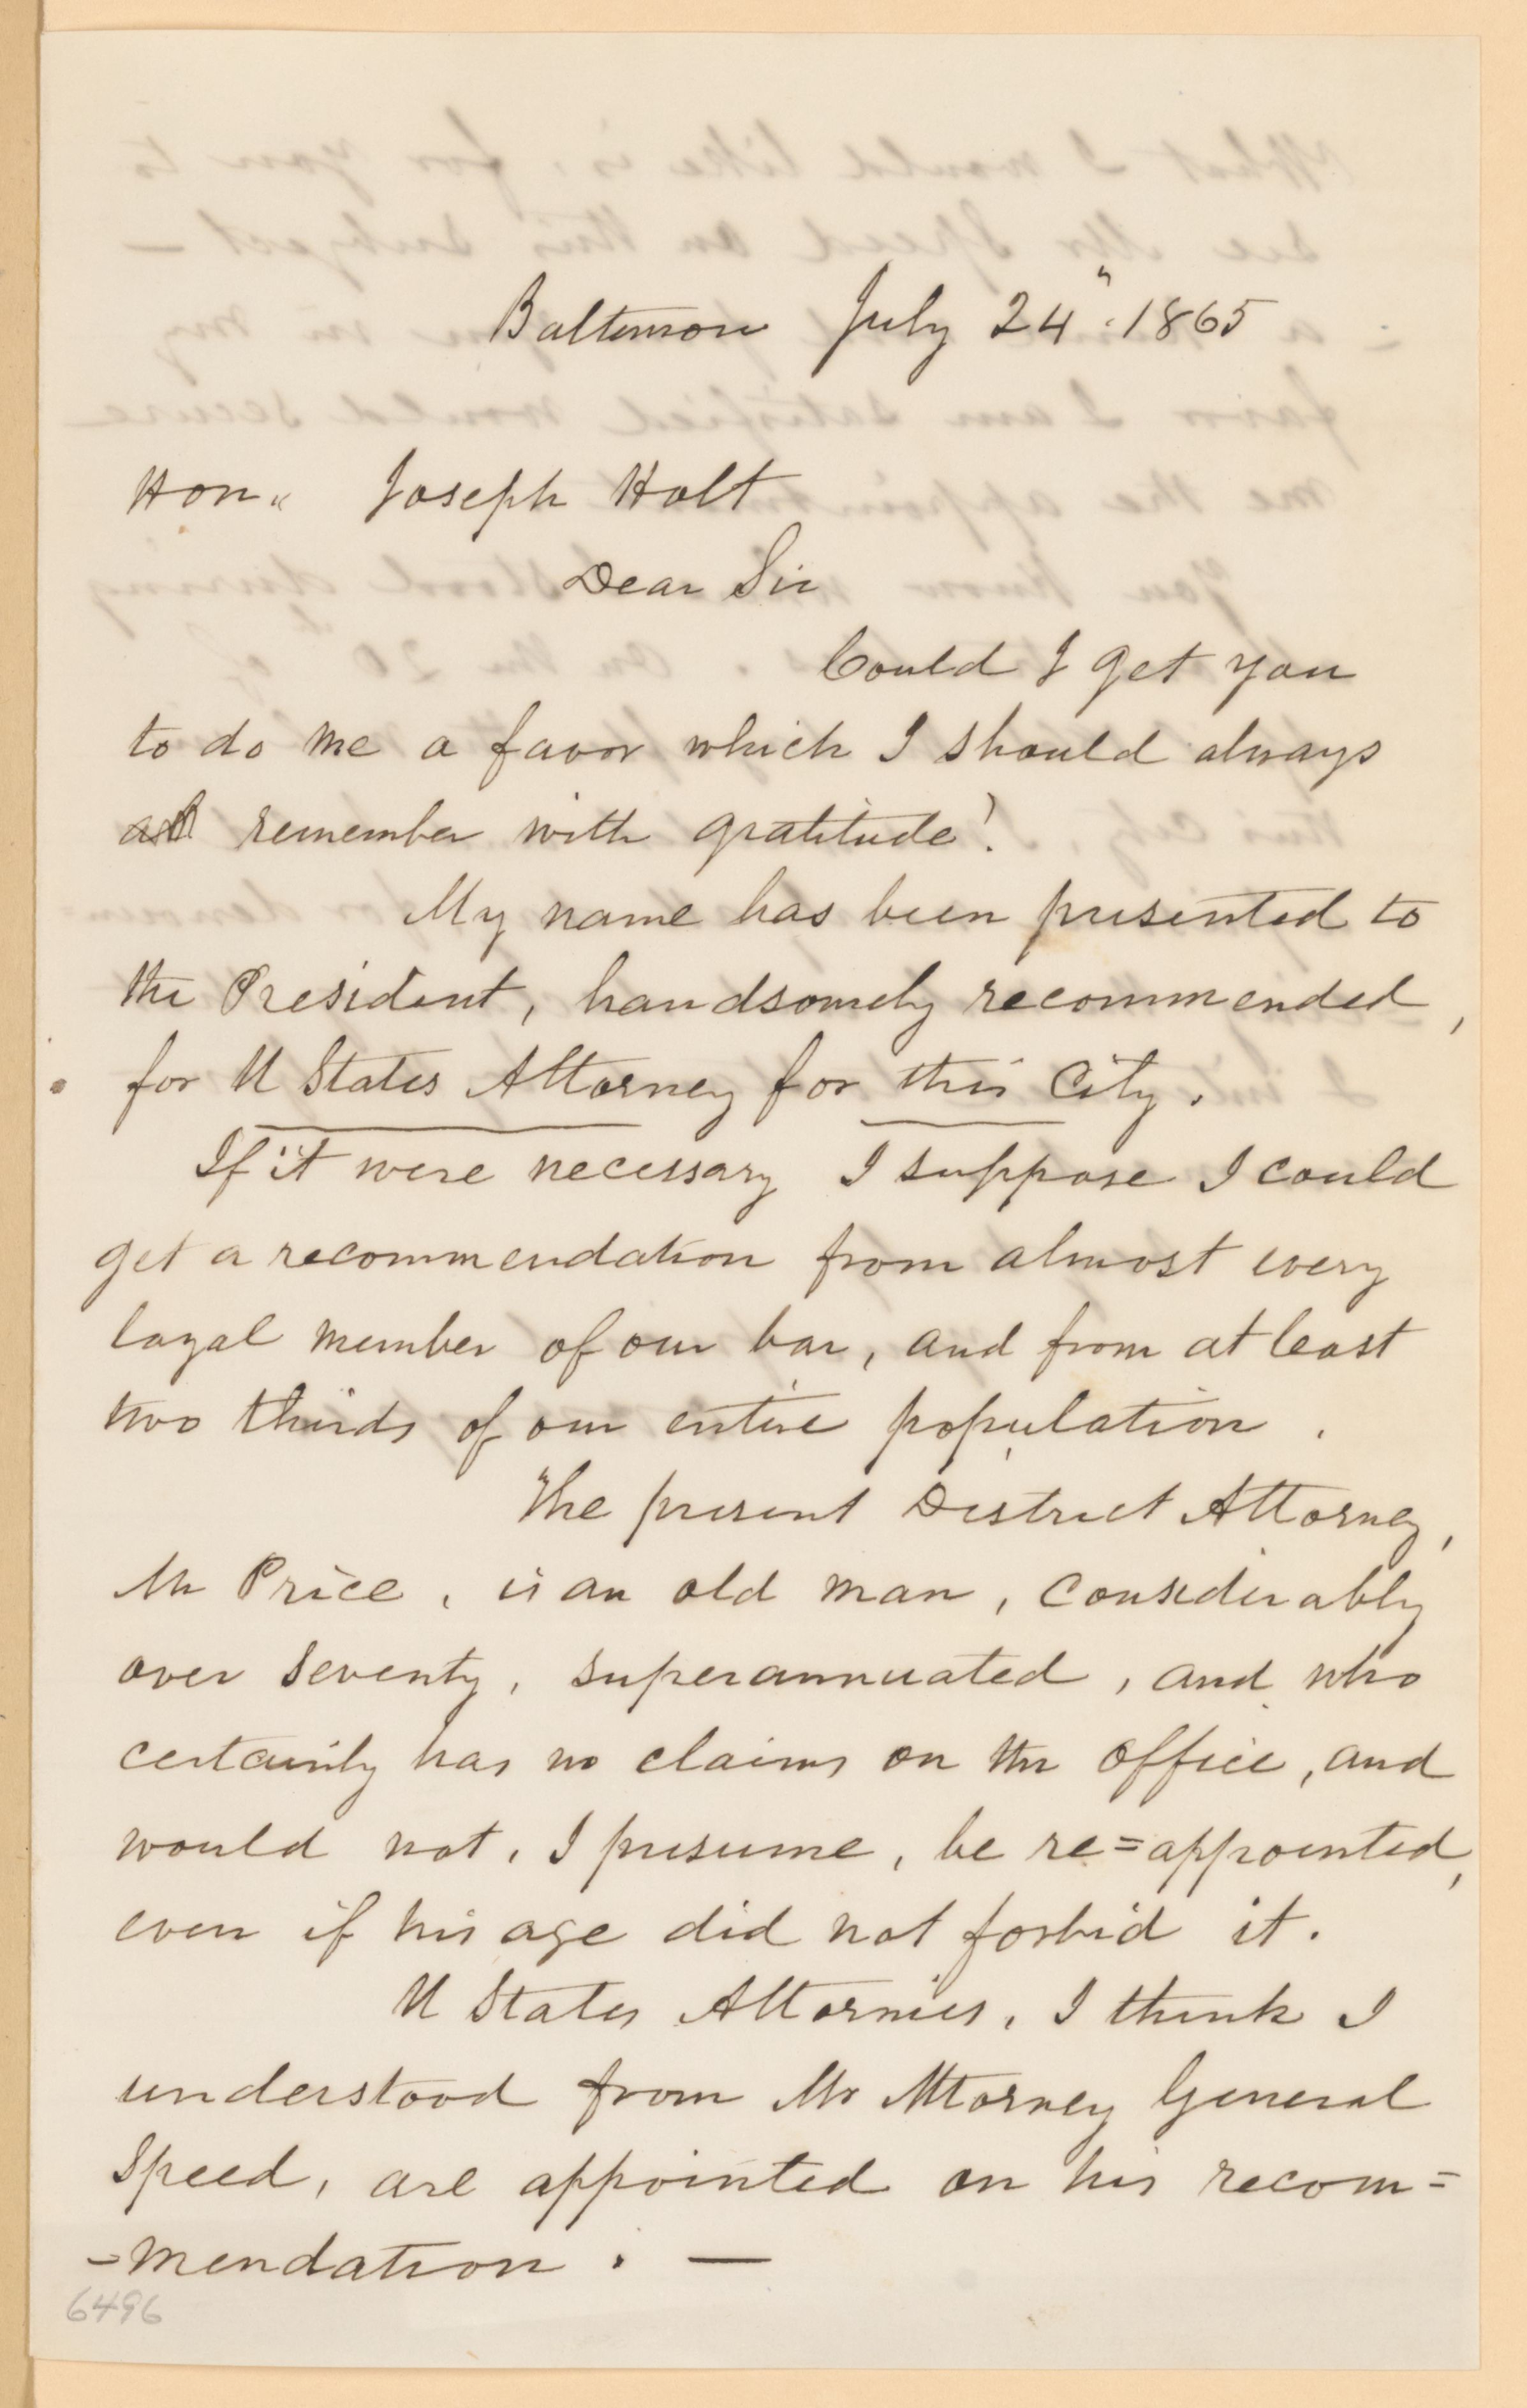 Baltimore July 24" 1865
Hon. Joseph Holt
Dear Sir
Could I get you
to do me a favor which I should always
remember with gratitude?
My name has been presented to
the President, handsomely recommended,
for U States Attorney for this City.
If it were necessary I suppose I could
get a recommendation from almost every
loyal member of our bar, and from at least
two thirds of our entire population.
The present District Attorney,
Mr Price, is an old man, considerably
over seventy, superannuated, and who
certainly has no claims on the office, and
would not, I presume, be re=appointed,
even if his age did not forbid it.
U States Attornies, I think I
understood from Mr Attorney General
Speed, are appointed on his recom=
=mendation. —
6496